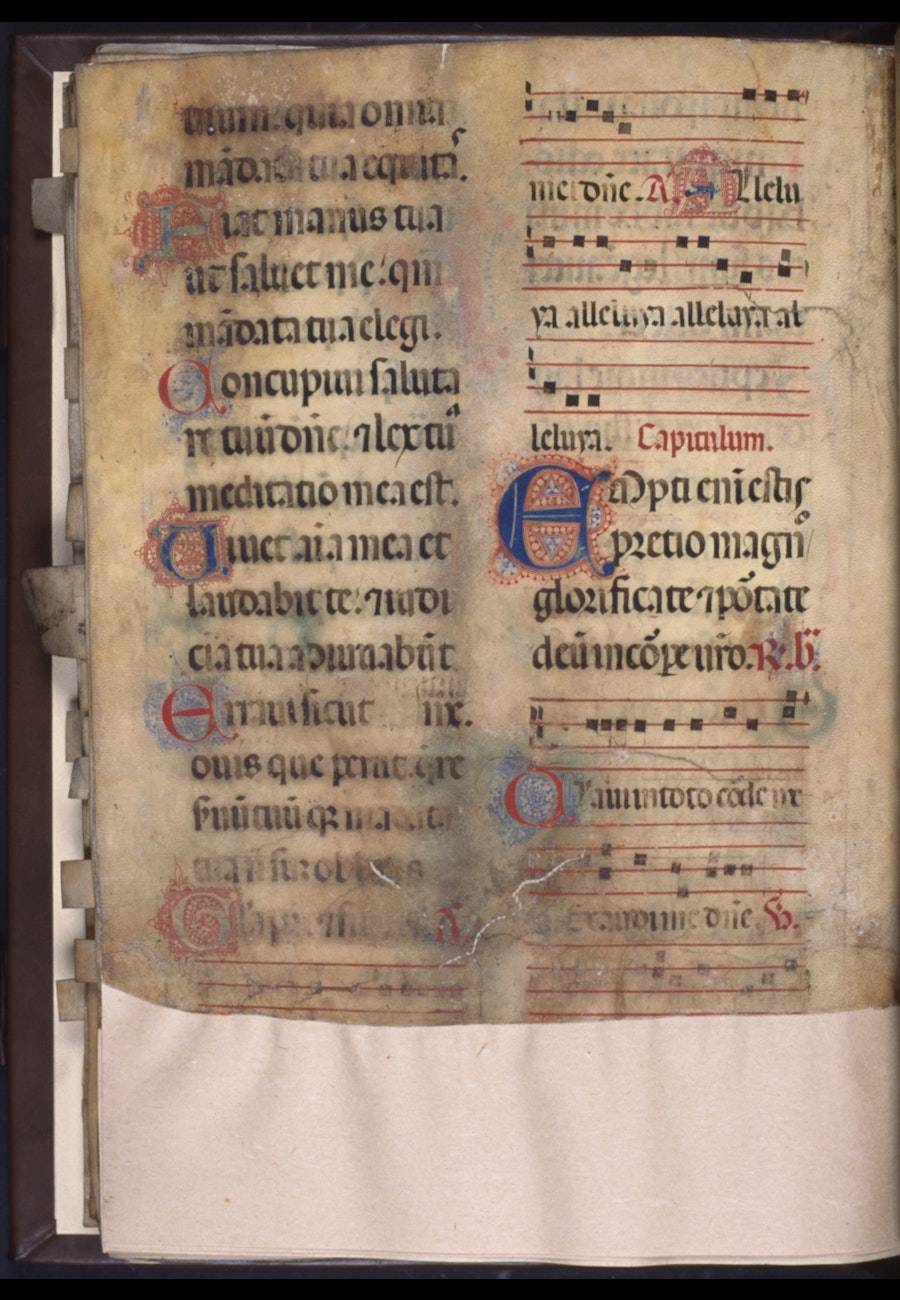 tuum: quia omnia
mādata tua equitā.
Fiat manus tua
ut saluet me: qm̄
mādata tua elegi.
Concupiui saluta
re tuū dn̄e: ⁊ lex tua
meditatio mea est.
Uiuet aīa mea et
laudabit te: ⁊ iudi
cia tua adiuuabūt
Erraui sicut me.
ouis que periit: q̄re
seruū tuū qr̄ mādata
tua nō sū oblitus
Gloria
A
me dn̄e. A. Allelu
ya alleluya alleluya al
leluya. Capitulum.
Empti eni estis
pretio magno
glorificate ⁊ portate
deū in corpe uro. R. b̄.
Clamaui in toto corde me
Exaudi me dn̄e V.